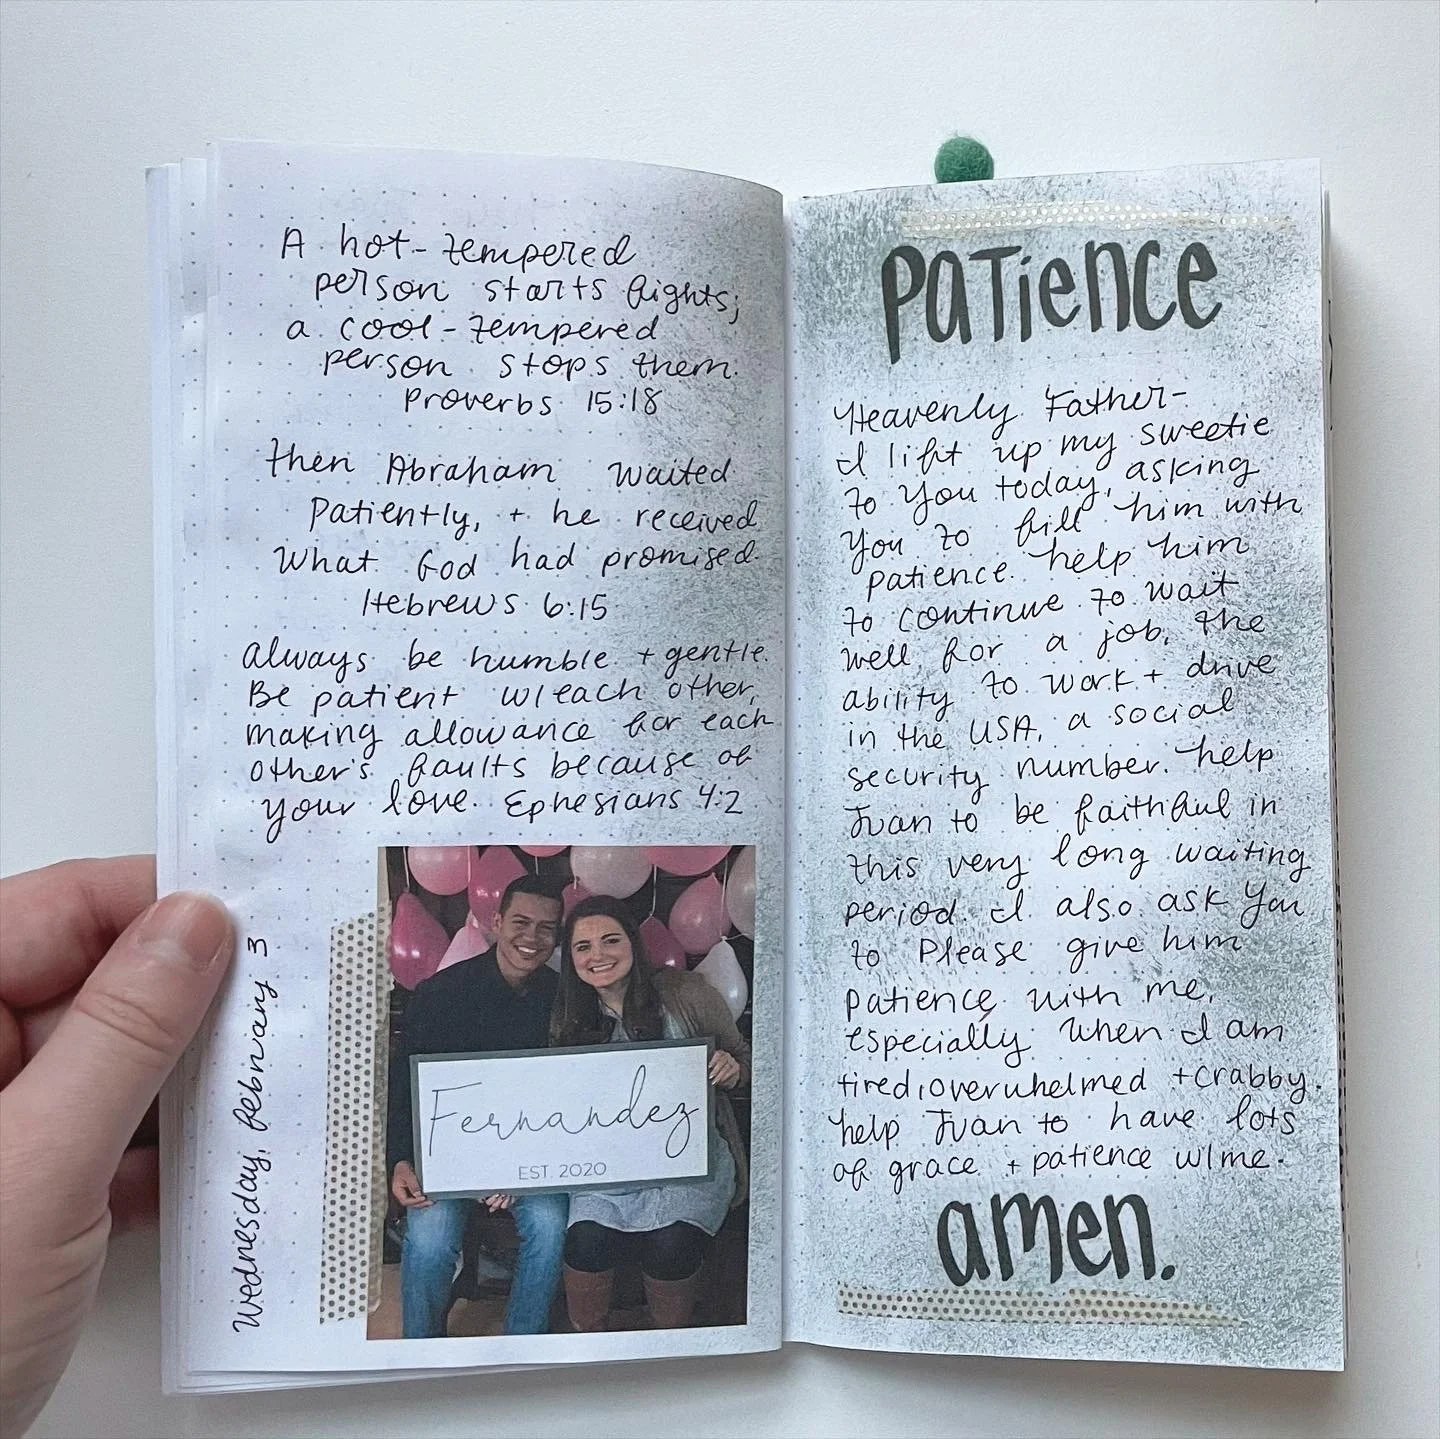 A hot-tempered
person starts fights;
a cool-tempered
person stops them.
Proverbs 15:18
then Abraham waited
patiently, + he received
what God had promised.
Hebrews 6:15
always be humble + gentle.
Be patient w/each other,
making allowance for each
other's faults because of
your love. Ephesians 4:2
Wednesday, February 3
Fernandez
EST. 2020
PaTience
Heavenly Father-
I lift up my sweetie
to You today, asking
You to fill him with
patience. help him
to continue to wait
well for a job, the
ability to work + drive
in the USA, a social
security number. help
Juan to be faithful in
this very long waiting
period. I also ask You
to please give him
patience with me,
especially when I am
tired, overwhelmed + crabby.
help Juan to have lots
of grace + patience w/me.
amen.